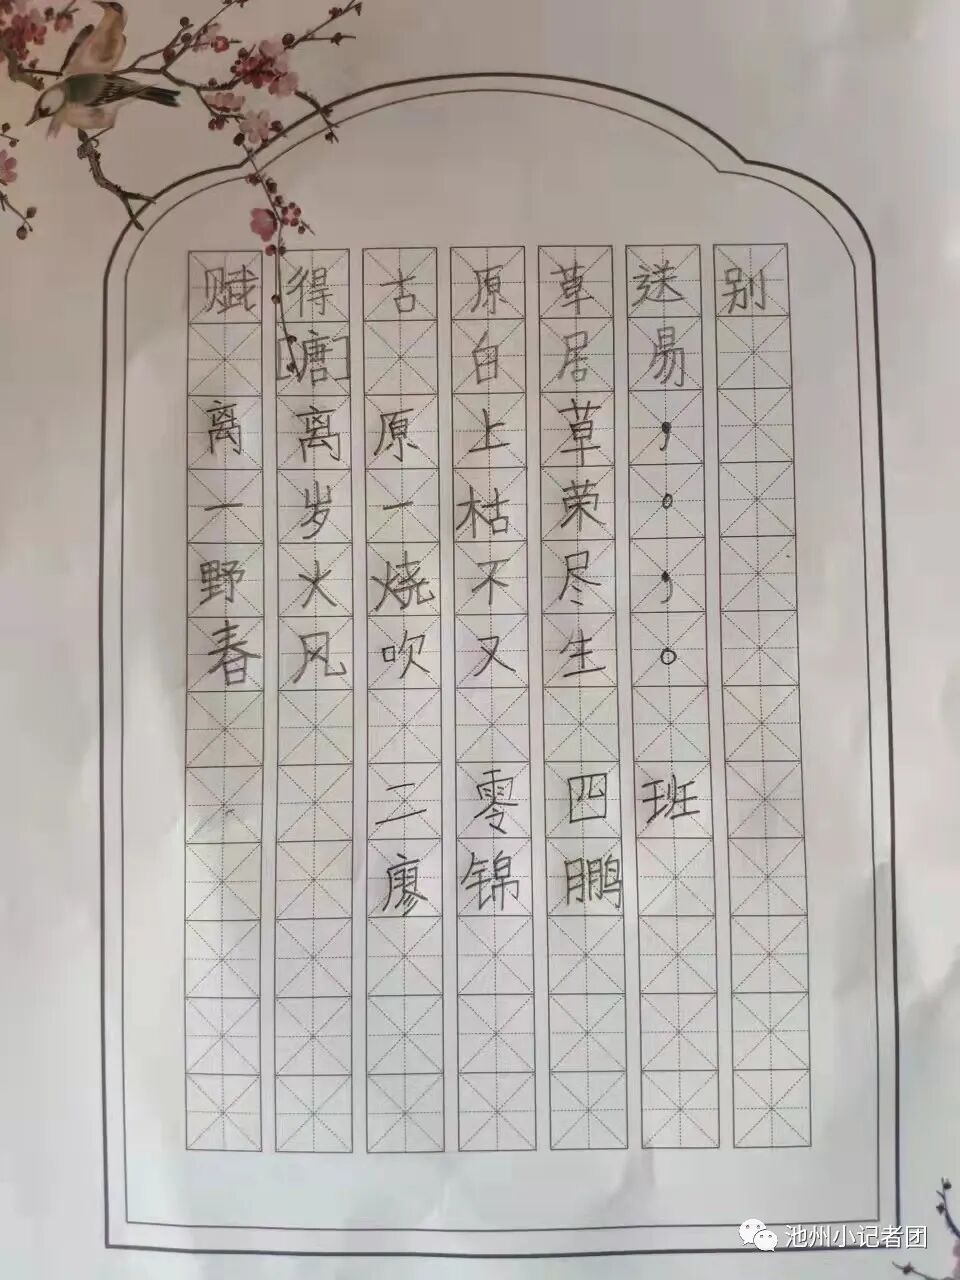 赋得古原草送别
[唐]白居易
离离原上草，
一岁一枯荣。
野火烧不尽，
春风吹又生。
二零四班
廖锦鹏
池州小记者团